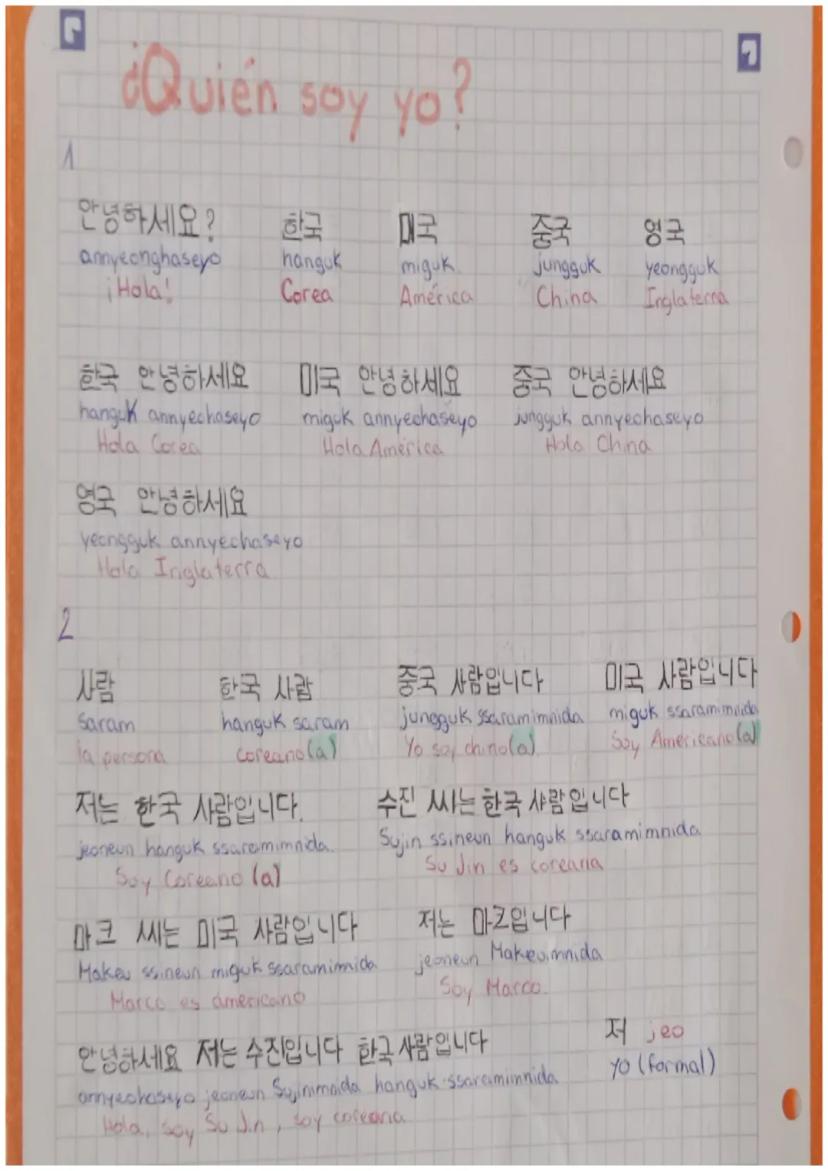 ¿Quién soy yo?
1
안녕하세요? 한국 미국 중국 영국
annyeonghaseyo hanguk miguk jungguk yeongguk
¡Hola! Corea América China Inglaterra
한국 안녕하세요 미국 안녕하세요 중국 안녕하세요
hanguk annyechaseyo miguk annyechaseyo jungguk annyechaseyo
Hola Corea Hola América Hola China
영국 안녕하세요
yeongguk annyechaseyo
Hola Inglaterra
2
사람 한국 사람 중국 사람입니다 미국 사람입니다
saram hanguk saram jungguk ssaramimnida miguk ssaramimnida
la persona coreano(a) Yo soy chino(a) Soy Americano(a)
저는 한국 사람입니다. 수진 씨는 한국 사람입니다
jeoneun hanguk ssaramimnida. Sujin ssineun hanguk ssaramimnida
Soy Coreano (a) Su Jin es coreana
마크 씨는 미국 사람입니다 저는 마크입니다
Makeu ssineun miguk ssaramimnida jeoneun Makeuimnida
Marco es americano Soy Marco.
안녕하세요 저는 수진입니다 한국 사람입니다 저 jeo
annyechaseyo jeoneun hanguk ssaramimnida yo (formal)
Hola, soy Su Jin, soy coreana